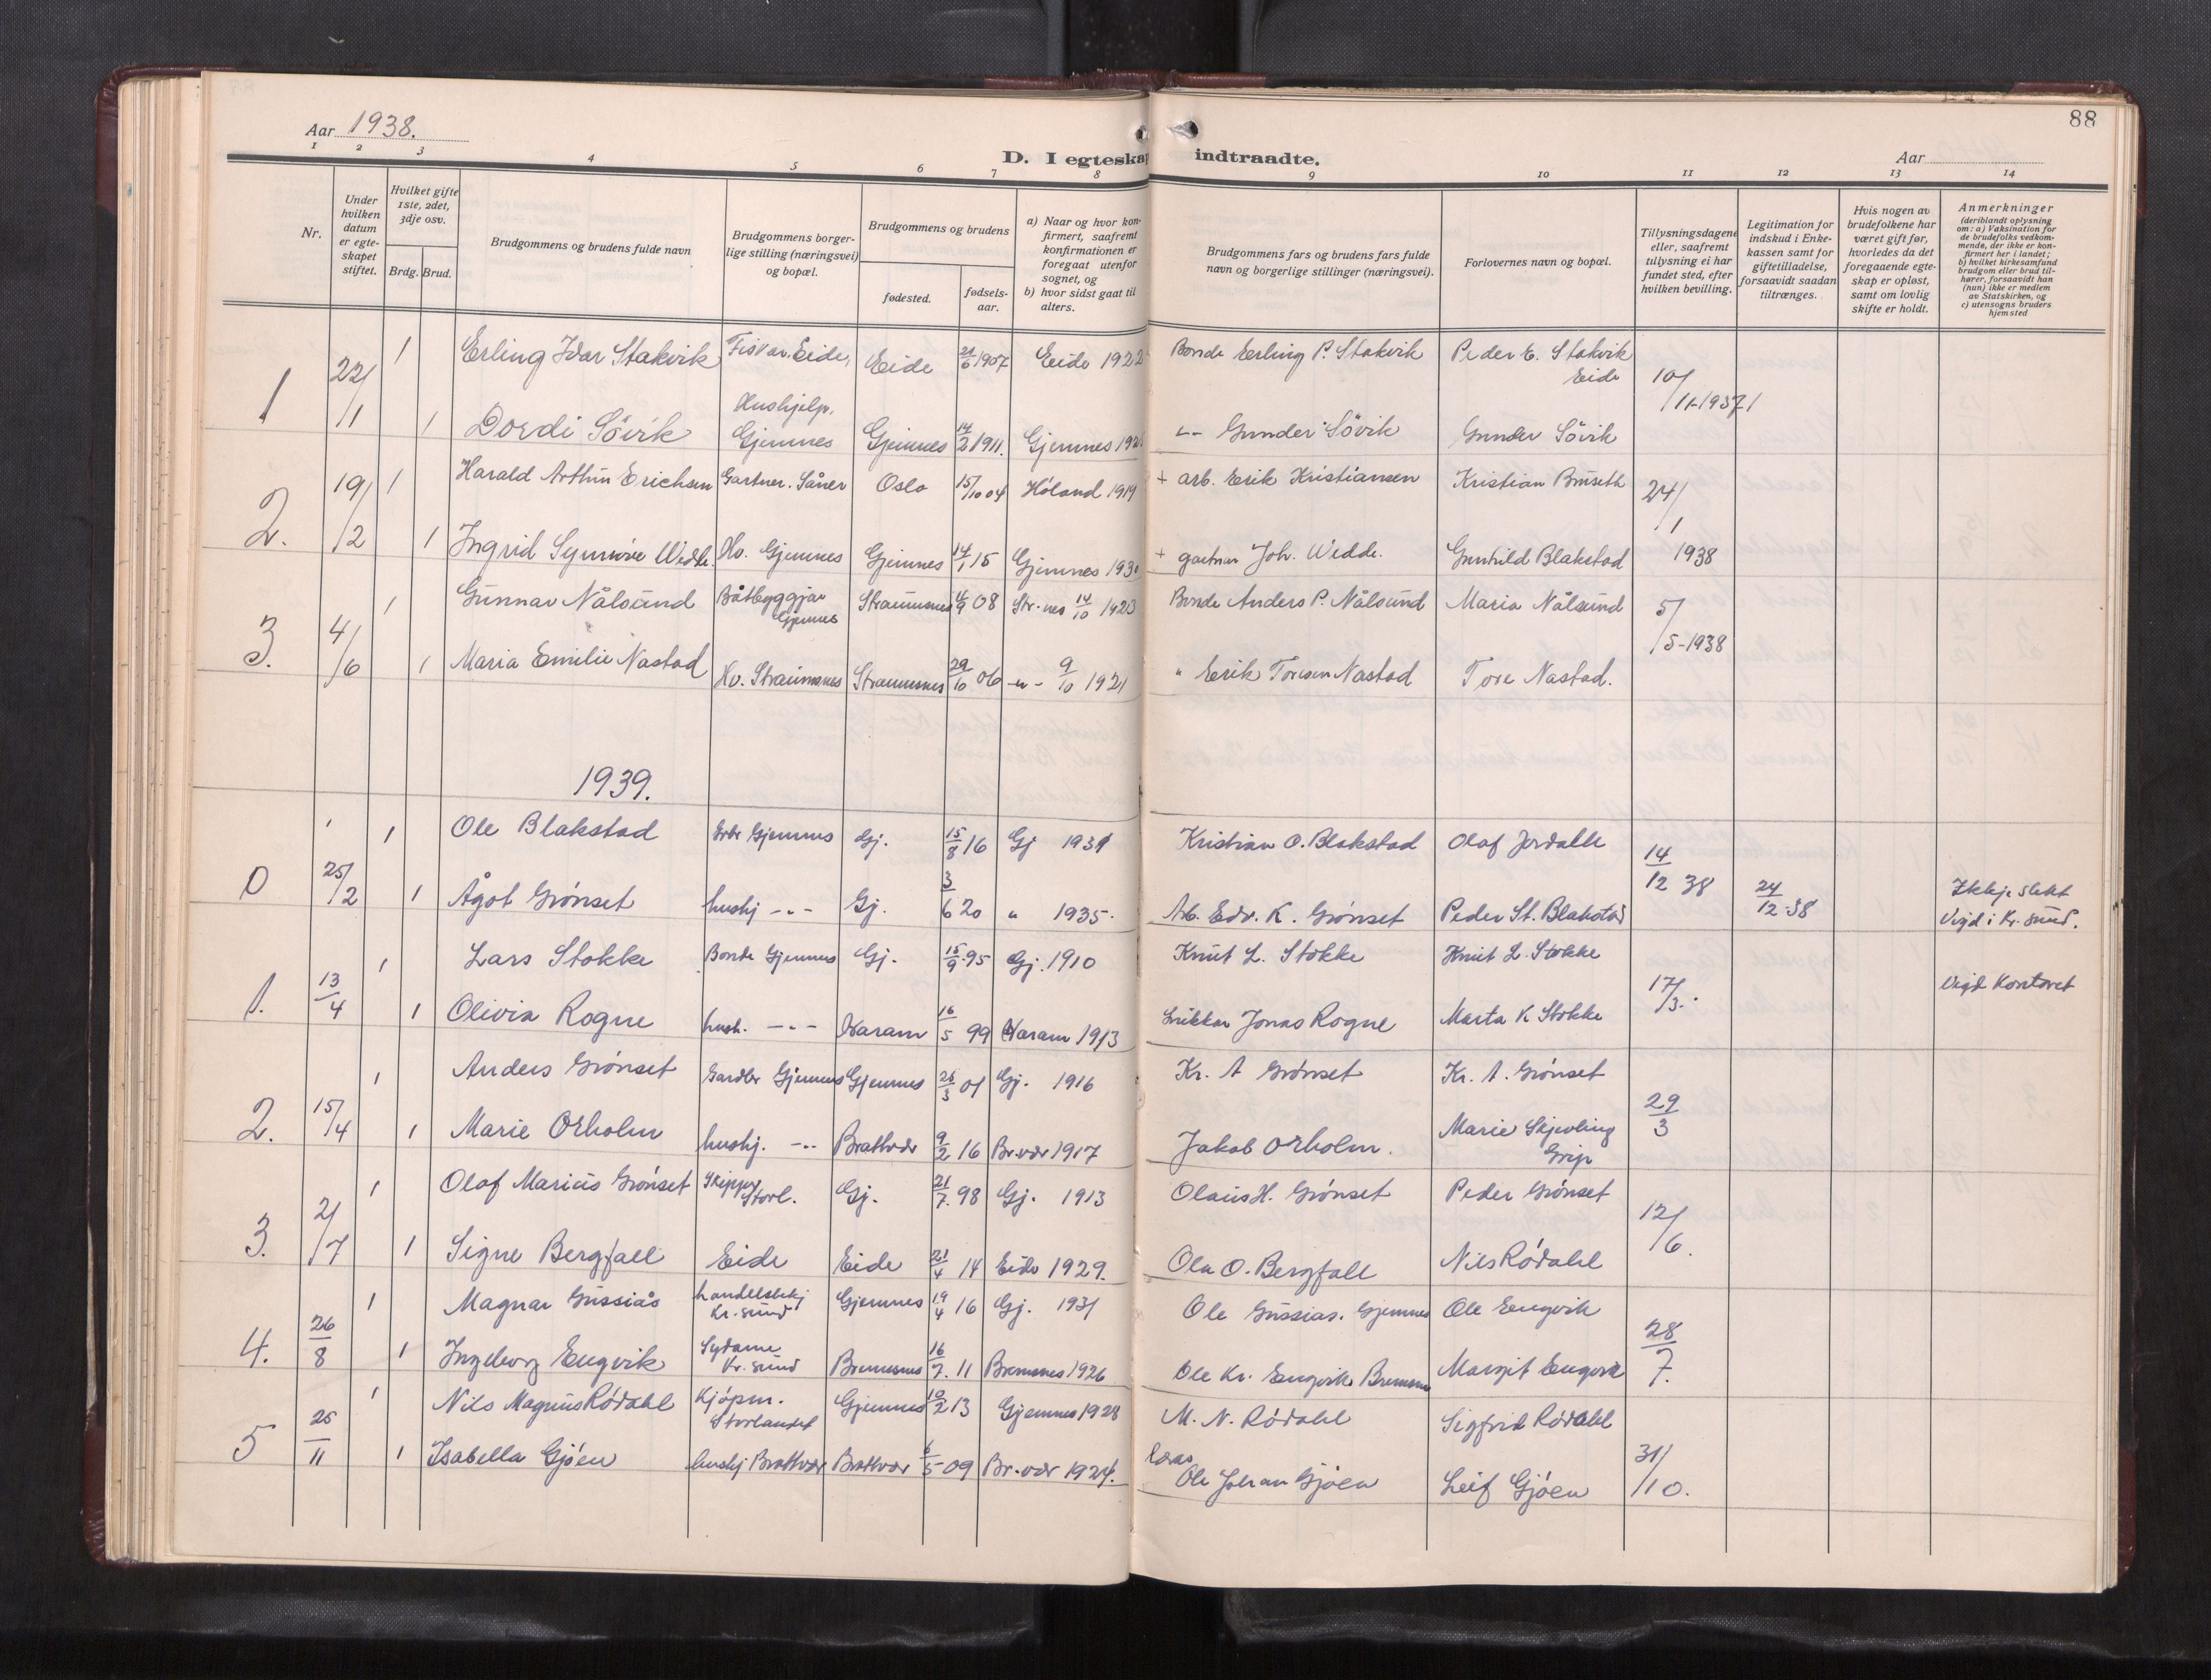 Aar 1938.
D. I egteskap indtraadte.
Aar
88
1 2 3 4 5 6 7 8 9 10 11 12 13 14
Nr.
Under hvilken datum er egteskapet stiftet.
Hvilket gifte 1ste, 2det, 3dje osv.
Brdg. Brud.
Brudgommens og brudens fulde navn
Brudgommens borgerlige stilling (næringsvei) og bopæl.
Brudgommens og brudens
fødested.
fødselsaar.
a) Naar og hvor konfirmert, saafremt konfirmationen er foregaat utenfor sognet, og
b) hvor sidst gaat til alters.
Brudgommens fars og brudens fars fulde navn og borgerlige stillinger (næringsvei).
Forlovernes navn og bopæl.
Tillysningsdagene eller, saafremt tillysning ei har fundet sted, efter hvilken bevilling.
Legitimation for indskud i Enkekassen samt for giftetilladelse, forsaavidt saadan tiltrænges.
Hvis nogen av brudefolkene har været gift før, hvorledes da det foregaaende egteskap er opløst, samt om lovlig skifte er holdt.
Anmerkninger
(deriblandt oplysning om: a) Vaksination for de brudefolks vedkommende, der ikke er konfirmert her i landet; b) hvilket kirkesamfund brudgom eller brud tilhører, forsaavidt han (hun) ikke er medlem av Statskirken, og c) utensogns bruders hjemsted
1 22/1 1 Erling Idar Stakvik Eide, Eide 21/6 1907 Eide 1922 Bonde Erling P. Stakvik Peder E. Stakvik Eide 10/11-1937
1 Dordi Søvik Hushjelp, Gjemnes Gjemnes 14/2 1911. Gjemnes -"- Gunder Søvik Gunder Søvik
2. 19/2 1 Harald Arthur Erichsen Gartner. Såner Oslo 15/10 04 Høland 1919 + arb. Erik Kristiansen Kristian Buseth 24/1 1938
1 Ingrid Synnøve Wedde. Hv. Gjemnes Gjemnes 14/1 15 Gjemnes 1930 + gartner Joh. Wedde. Gunhild Blakstad
3. 4/6 1 Gunnar Nålsund Båtbyggjar Gjemnes Straumsnes 08 Str.nes 14/10 1923 Bonde Anders P. Nålsund Maria Nålsund 5/5-1938
1 Maria Emilie Nastad Hv. Straumsnes Straumsnes 29/10 06 -"- 9/10 1921 " Erik Toresen Nastad Tore Nastad.
1939.
0 25/2 1 Ole Blakstad Gjemnes Gj. 15/8 16 Gj 1931 Kristian O. Blakstad Olaf Jordalle 14/12 38
1 Ågot Grønset hushj -"- Gj. 3/6 20 " 1935. Arb. Edv. K. Grønset Peder St. Blakstad 24/12.38 Ikkje slekt Vigd i Kr.sund.
1. 13/4 1 Lars Stokke Bonde Gjemnes Gj. 15/9.95 Gj. 1910 Knut L. Stokke Knut L. Stokke 17/3. Vigd Kontoret
1 Olivia Rogne hush. -"- Haram 16/5 99 Haram 1913 Jonas Rogne Marta K Stokke
2. 15/4 1 Anders Grønset Gardbr Gjemnes Gjemnes 26/3 01 Gj. 1916 Kr. A Grønset Kr. A. Grønset 29/3
1 Marie Orholm hushj. -"- Brattvær 9/2 16 Br.vær 1917 Jakob Orholm. Marie Skjevling Grip
3. 21/7 1 Olaf Marius Grønset Skipper Storl. Gj. 21/7.98 Gj. 1913 Olaus H. Grønset Peder Grønset 12/6.
1 Signe Bergfall Eide Eide 21/4 14 Eide 1929. Ola O. Bergfall Nils Rødahl
4. 26/8 1 Magnar Gussiås handelsbetj Kr.sund Gjemnes 19/4 16 Gj. 1931 Ole Gussias. Gjemnes Ole Engvik 28/7.
1 Ingeborg Engvik Sydame Kr.sund Bremsnes 16/7.11 Bremsnes 1926 Ole Kr. Engvik Bremsnes Margit Engvik
5 25/11 1 Nils Magnus Rødahl Kjøpm. Storlandet Gjemnes 10/2 13 Gjemnes 1928 M. N. Rødahl Sigfrid Rødahl 31/10.
1 Isabella Gjøen hushj Brattvær Brattvær 6/5 09 Br.vær 1924. Ole Johan Gjøen Leif Gjøen